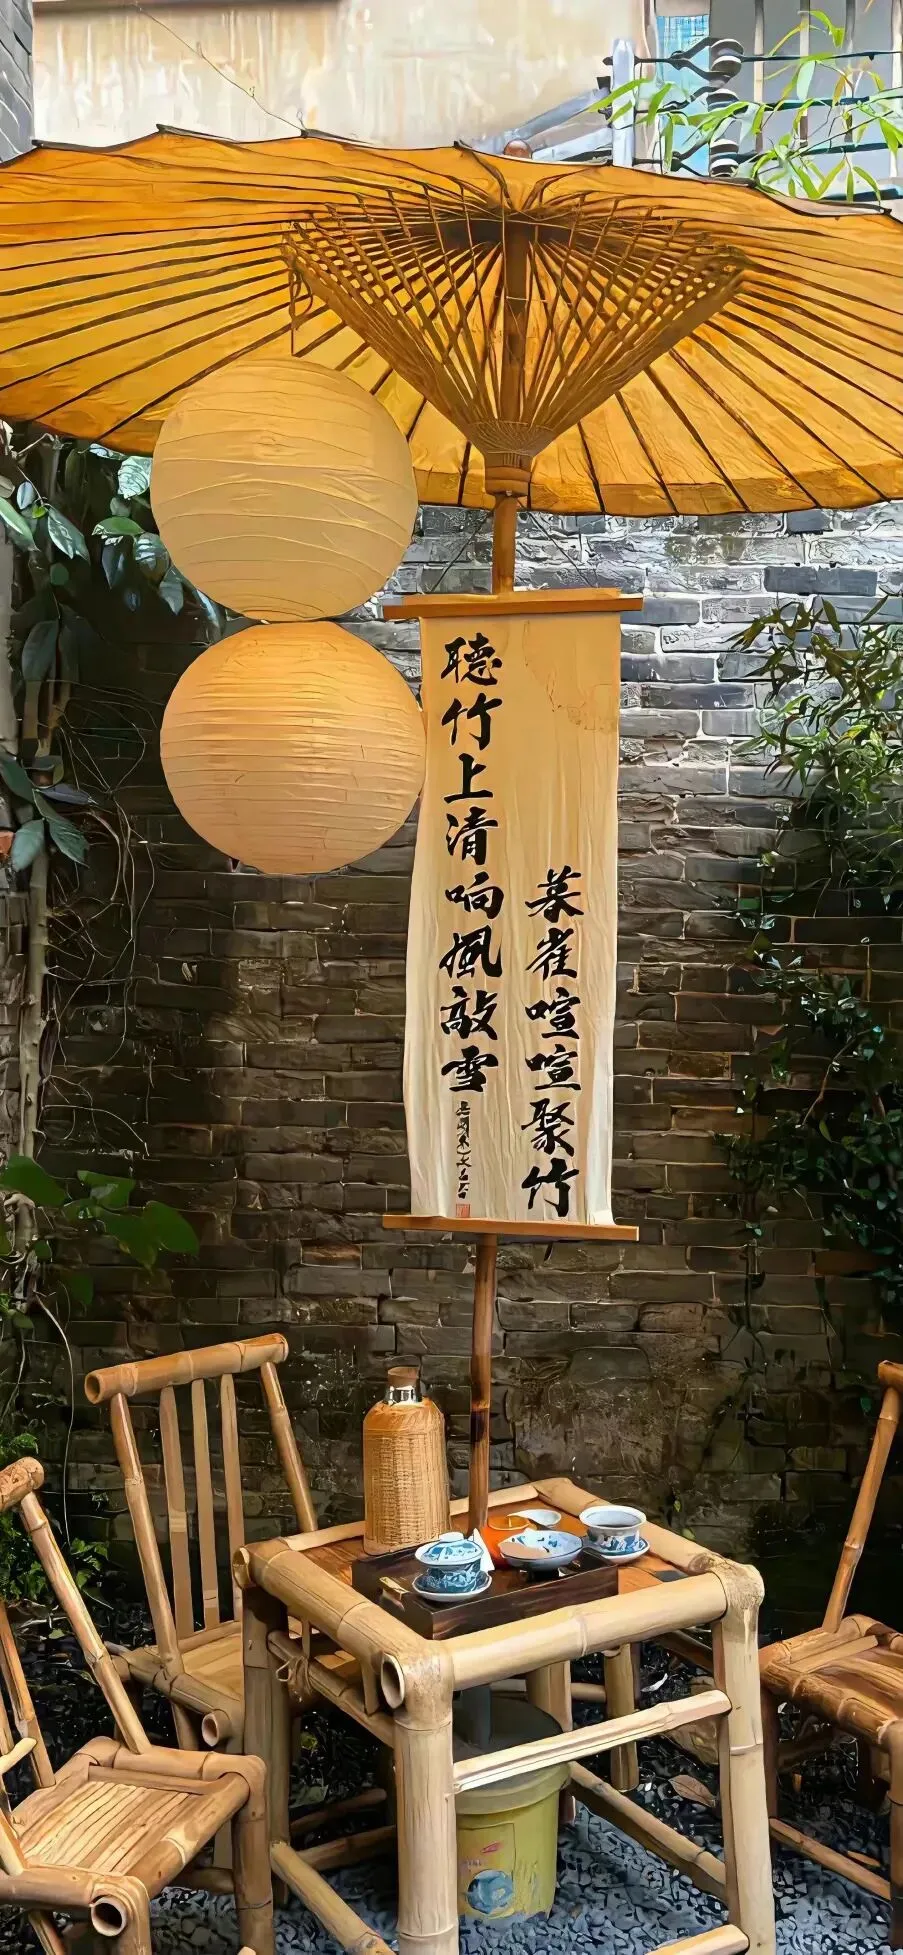 暮雀喧喧聚竹
聴竹上清响風敲雪